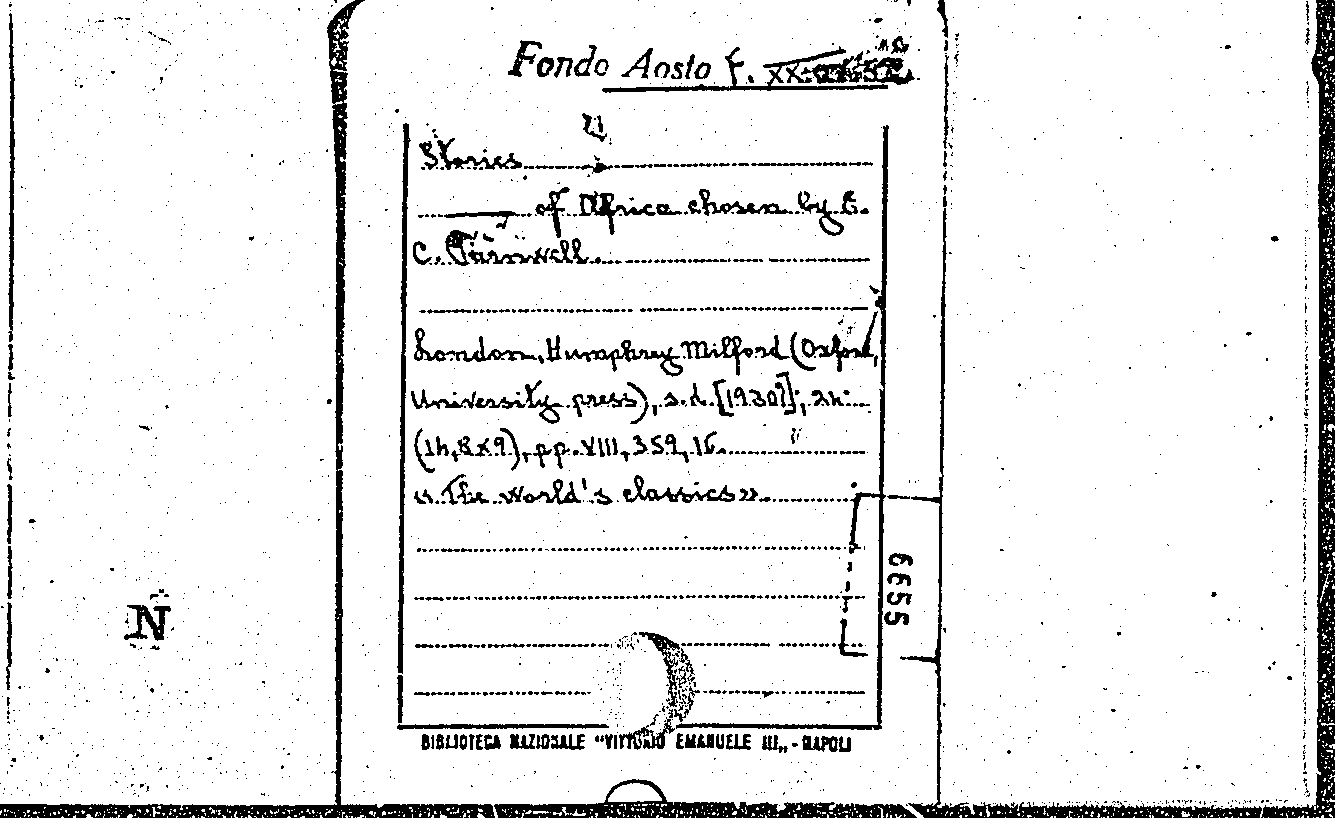 Fondo Aosta F.
Stories
of Africa chosen by E.
C. Parnwell.
London, Humphrey Milford (Oxford,
University press), s.d. [1930?], 24°
(14,8x9), pp. VIII, 359, 16.
«The world's classics».
6655
N
BIBLIOTECA NAZIONALE "VITTORIO EMANUELE III„ - NAPOLI